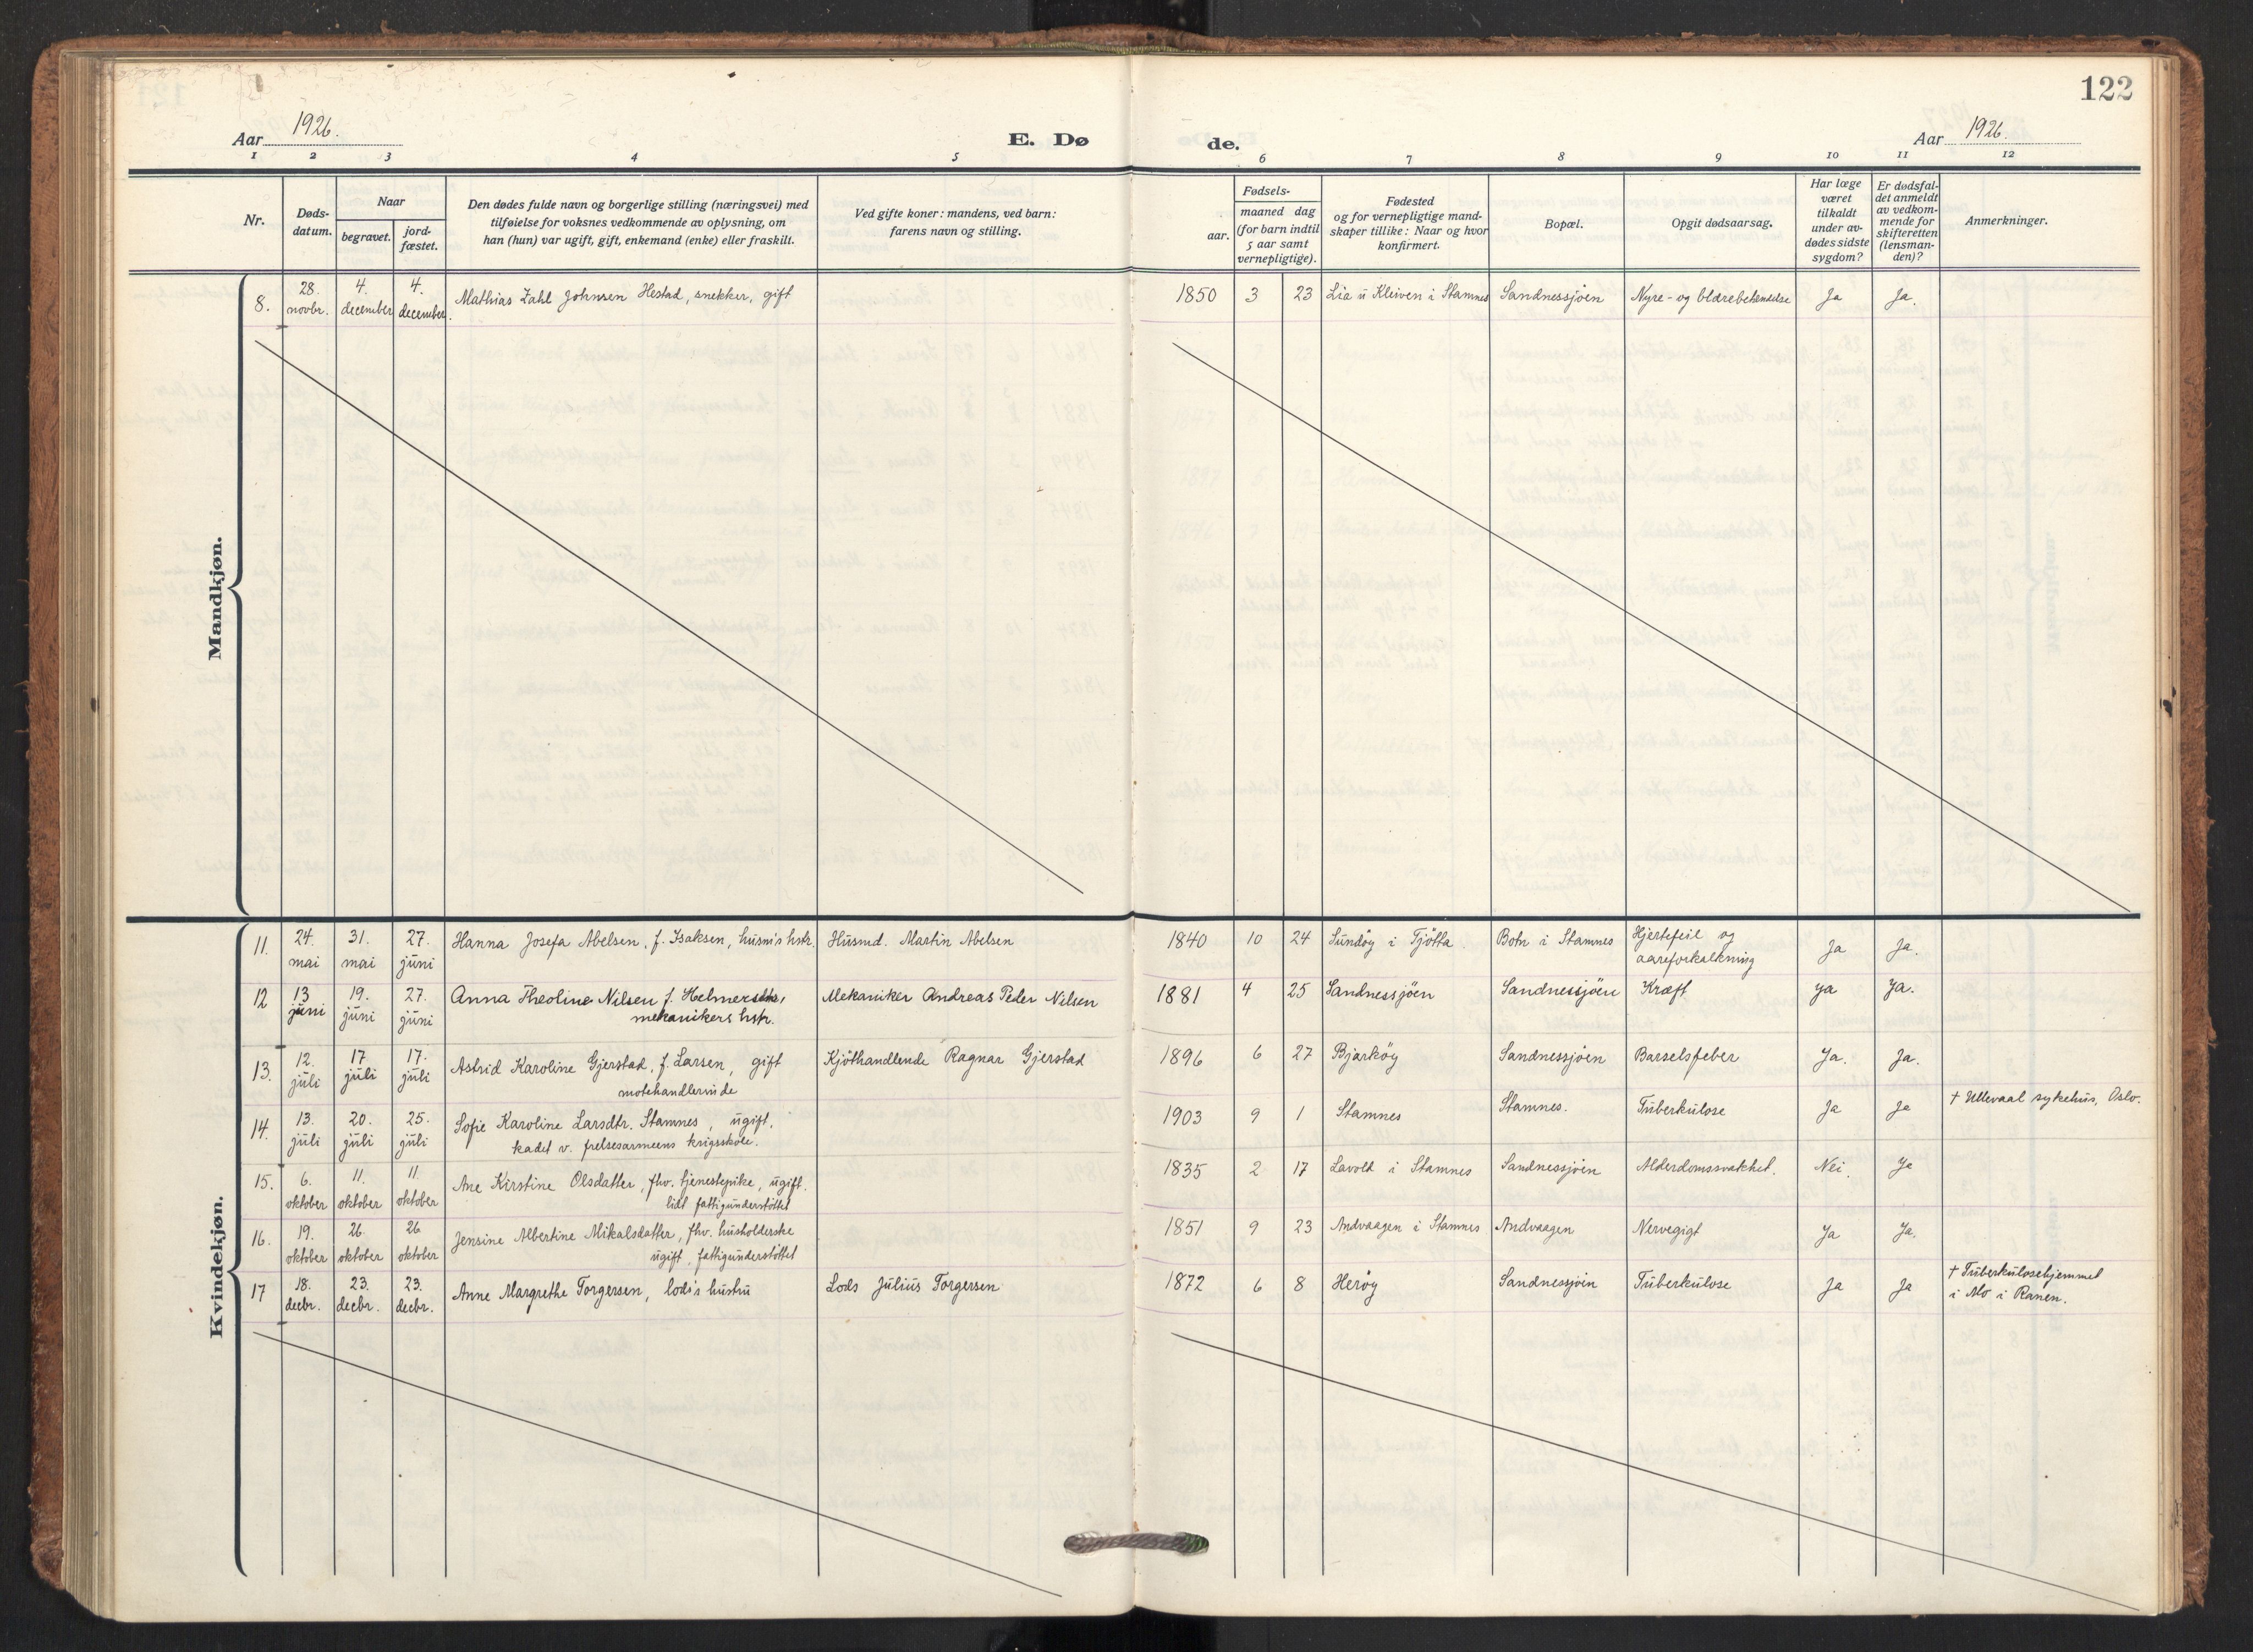 122
Aar 1926.
E. Dø
de.
Aar 1926.
1 2 3 4 5 6 7 8 9 10 11 12
Nr.
Døds-
datum.
Naar
begravet.
jord-
fæstet.
Den dødes fulde navn og borgerlige stilling (næringsvei) med
tilføielse for voksnes vedkommende av oplysning, om
han (hun) var ugift, gift, enkemand (enke) eller fraskilt.
Ved gifte koner: mandens, ved barn:
farens navn og stilling.
Fødsels-
aar.
maaned dag
(for barn indtil
5 aar samt
vernepligtige).
Fødested
og for vernepligtige mand-
skaper tillike: Naar og hvor
konfirmert.
Bopæl.
Opgit dødsaarsag.
Har læge
været
tilkaldt
under av-
dødes sidste
sygdom?
Er dødsfal-
det anmeldt
av vedkom-
mende for
skifteretten
(lensman-
den)?
Anmerkninger.
Mandkjøn.
8.
28.
novbr.
4.
december
4.
december.
Mathias Zahl Johnsen Hestad, snekker, gift
1850 3 23 Lia u Kleiven i Stamnes Sandnessjøen Nyre- og blærebetændelse Ja Ja.
Kvindekjøn.
11.
24.
mai
31.
mai
27.
juni
Hanna Josefa Abelsen, f. Isaksen, husm's hstr.
Husmd. Martin Abelsen
1840 10 24 Sundøy i Tjøtta. Botn i Stamnes
Hjertefeil og
aareforkalkning
Ja Ja.
12
13
juni
19.
juni
27.
juni
Anna Theoline Nilsen f. Helmersen,
mekanikers hstr.
Mekaniker Andreas Peder Nilsen
1881 4 25 Sandnessjöen Sandnessjöen Kræft ya Ja.
13.
12.
juli
17.
juli
17.
juli
Astrid Karoline Gjerstad, f. Larsen, gift
motehandlerinde
Kjöthandlende Ragnar Gjerstad
1896 6 27 Bjarköy Sandnessjöen Barselsfeber Ja. Ja.
14.
13.
juli
20.
juli
25.
juli
Sofie Karoline Larsdtr. Stamnes, ugift.
kadet v. frelsesarmeens krigsskole.
1903 9 1 Stamnes Stamnes. Tuberkulose Ja Ja † Ullevaal sykehus, Oslo.
15.
6.
oktober
11.
oktober
11.
oktober
Ane Kirstine Olsdatter, fhv. tjenestepike, ugift.
lidt fattigunderstöttet
1835 2 17 Lavold i Stamnes Sandnessjöen Alderdomssvakhet. Nei. Ja
16.
19.
oktober
26.
oktober
26
oktober
Jensine Albertine Mikalsdatter, fhv. husholderske
ugift, fattigunderstöttet
1851 9 23 Andvaagen i Stamnes Andvaagen Nervegigt Ja Ja.
17
18.
decbr.
23.
decbr.
23.
decbr.
Anne Margrethe Torgersen, lods's hustru
Lods Julius Torgersen
1872 6 8 Heröy Sandnessjöen Tuberkulose Ja Ja
† Tuberkulosehjemmet
i Mo i Ranen.